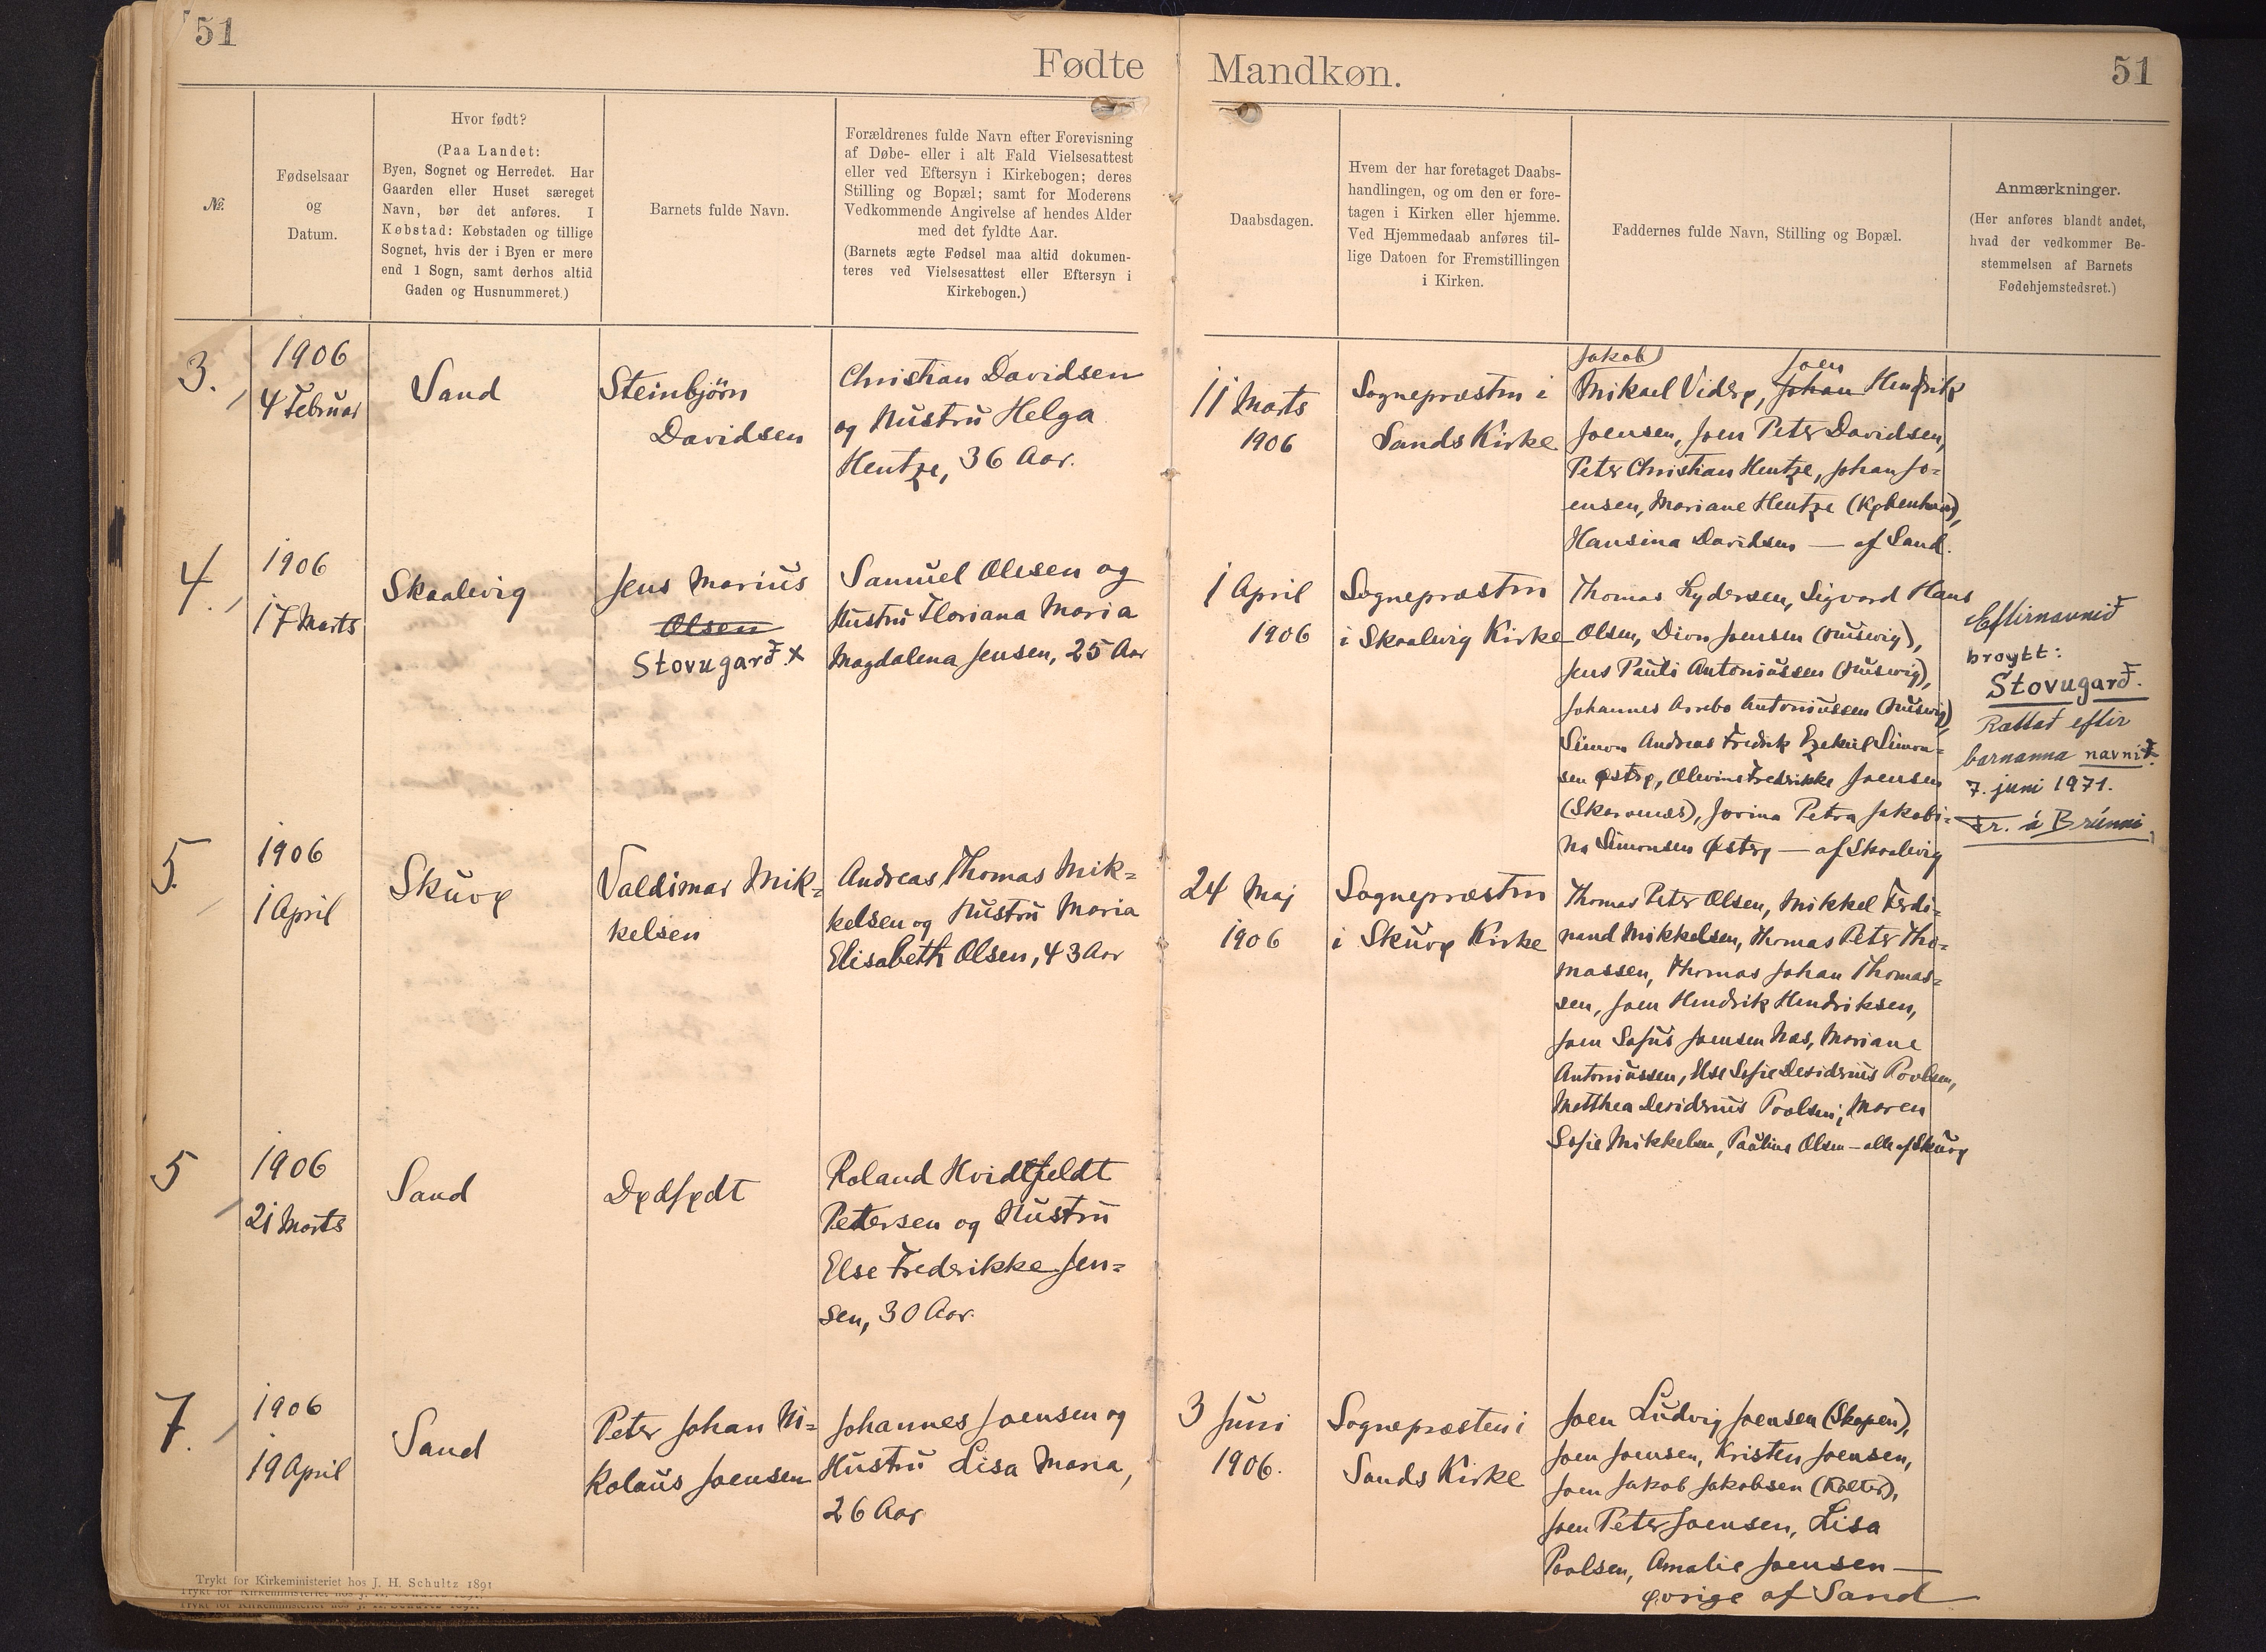 51
Fødte
Mandkøn.
51
№.
Fødselsaar
og
Datum.
Hvor født?
(Paa Landet:
Byen, Sognet og Herredet. Har
Gaarden eller Huset særeget
Navn, bør det anføres. I
Købstad: Købstaden og tillige
Sognet, hvis der i Byen er mere
end 1 Sogn, samt derhos altid
Gaden og Husnummeret.)
Barnets fulde Navn.
Forældrenes fulde Navn efter Forevisning
af Døbe- eller i alt Fald Vielsesattest
eller ved Eftersyn i Kirkebogen; deres
Stilling og Bopæl; samt for Moderens
Vedkommende Angivelse af hendes Alder
med det fyldte Aar.
(Barnets ægte Fødsel maa altid dokumen-
teres ved Vielsesattest eller Eftersyn i
Kirkebogen.)
Daabsdagen.
Hvem der har foretaget Daabs-
handlingen, og om den er fore-
tagen i Kirken eller hjemme.
Ved Hjemmedaab anføres til-
lige Datoen for Fremstillingen
i Kirken.
Faddernes fulde Navn, Stilling og Bopæl.
Anmærkninger.
(Her anføres blandt andet,
hvad der vedkommer Be-
stemmelsen af Barnets
Fødehjemstedsret.)
3.
1906
4 Februar
Sand
Steinbjörn
Davidsen
Christian Davidsen
og Hustru Helga
Hentze, 36 Aar.
11 Marts
1906
Sognepræsten i
Sands Kirke
Jakob Joen
Mikael Viderø, Johan Hendrik
Joensen, Joen Peter Davidsen,
Peter Christian Hentze, Johan Jo=
ensen, Mariane Hentze (København),
Hansina Davidsen — af Sand.
4.
1906
17 Marts
Skaalevig
Jens Marius
Olsen
Stovugarð. x
Samuel Olesen og
Hustru Floriana Maria
Magdalena Jensen, 25 Aar
1 April
1906
Sognepræsten
i Skaalevig Kirke
Thomas Lydersen, Sigvard Hans
Olsen, Joensen (Husevig),
Jens Pauli Antoniussen (Husevig),
Johannes Arrebo Antoniussen (Husevig),
Simon Andreas Fredrik Ezekiel Simon=
sen Østrø, Olevine Fredrikke Joensen
(Skarvenæs), Jorina Petra Jakobi=
na Simonsen Østrø — af Skaalevig
Eftirnavnið
broytt:
Stovugarð.
Rættað eftir
barnanna navnið
7. juni 1971.
Fr. á Brúnni
5.
1906
1 April
Skuvø
Valdimar Mik=
kelsen
Andreas Thomas Mik=
kelsen og Hustru Maria
Elisabeth Olsen, 43 Aar
24 Maj
1906
Sognepræsten
i Skuvø Kirke
Thomas Peter Olsen, Mikkel Ferdi=
nand Mikkelsen, Thomas Peter Tho=
massen, Thomas Johan Thomas=
sen, Joen Hendrik Hendriksen,
Joen Sofus Joensen Næs, Mariane
Antoniussen, Else Sofie Desiderius Poulsen,
Matthea Desiderius Poulsen, Maren
Sofie Mikkelsen, Pauline Olsen — alle af Skuvø
5
1906
21 Marts
Sand
Dødfødt
Roland Hvidtfeldt
Petersen og Hustru
Else Fredrikke Jen=
sen, 30 Aar.
7.
1906
19 April
Sand
Peter Johan Ni=
kolaus Joensen
Johannes Joensen og
Hustru Lisa Maria,
26 Aar
3 Juni
1906.
Sognepræsten i
Sands Kirke
Joen Ludvig Joensen (Skopen),
Joen Joensen, Kristen Joensen,
Joen Jakob Jakobsen (Kolter),
Joen Peter Joensen, Lisa
Poulsen, Amalie Joensen —
øvrige af Sand
Trykt for Kirkeministeriet hos J. H. Schultz 1891